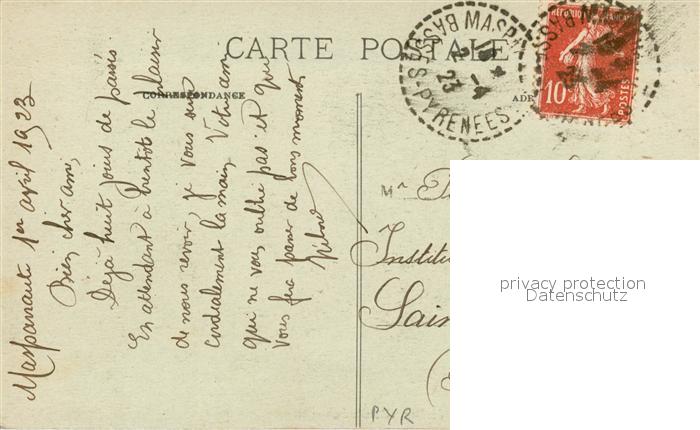 CARTE POSTALE
CORRESPONDANCE
Masparraute 1er avril 1923
Bien cher ami,
Déjà huit jours de passés.
En attendant à bientôt le plaisir
de nous revoir, je vous serre
cordialement la main. Votre ami
qui ne vous oublie pas et qui
vous fera passer de bons moments
BASSES-PYRENEES
23
REPUBLIQUE FRANCAISE
10
POSTES
ADR
Mr
Institu
Sain
PYR
privacy protection
Datenschutz